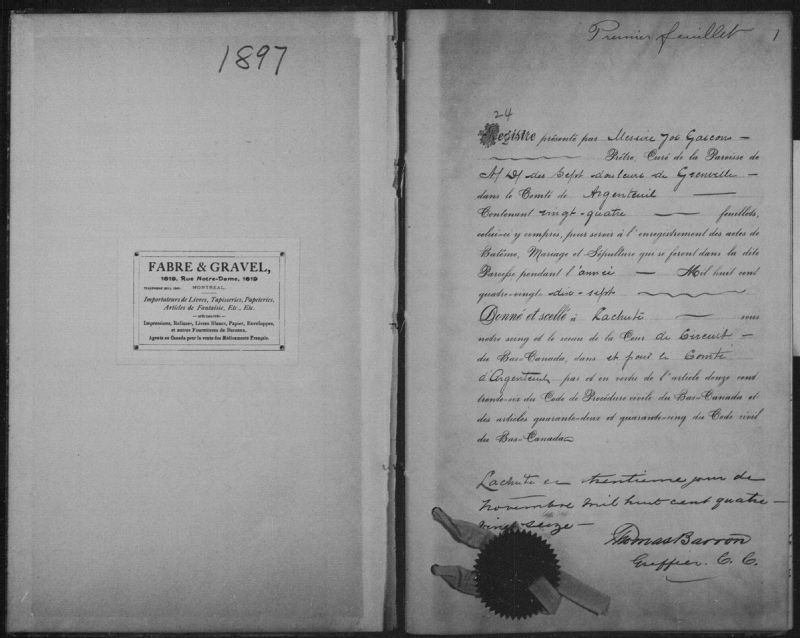 1897
FABRE & GRAVEL,
1619, Rue Notre-Dame, 1619
MONTREAL.
Importateurs de Livres, Tapisseries, Papeteries,
Articles de Fantaisie, Etc., Etc.
Impressions, Reliures, Livres Blancs, Papier, Enveloppes,
et autres Fournitures de Bureaux.
Agents au Canada pour la vente des Médicaments Français.
Premier feuillet 1
24
Registre présenté par Messire Jos Gascon —
Prêtre, Curé de la Paroisse de
N D des Sept douleurs de Grenville —
dans le Comté de Argenteuil —
Contenant vingt-quatre — feuillets,
celui-ci y compris, pour servir à l'enregistrement des actes de
Batême, Mariage et Sépulture qui se feront dans la dite
Paroisse pendant l'année — Mil huit cent
quatre-vingt dix-sept
Donné et scellé à Lachute — sous
notre seing et le sceau de la Cour de Circuit —
du Bas-Canada, dans et pour le Comté
d'Argenteuil par et en vertu de l'article douze cent
trente-six du Code de Procédure civile du Bas-Canada et
des articles quarante-deux et quarante-cinq du Code civil
du Bas-Canada
Lachute ce trentieme jour de
novembre mil huit cent quatre —
vingt seize —
Thomas Barron
Greffier. C. C.